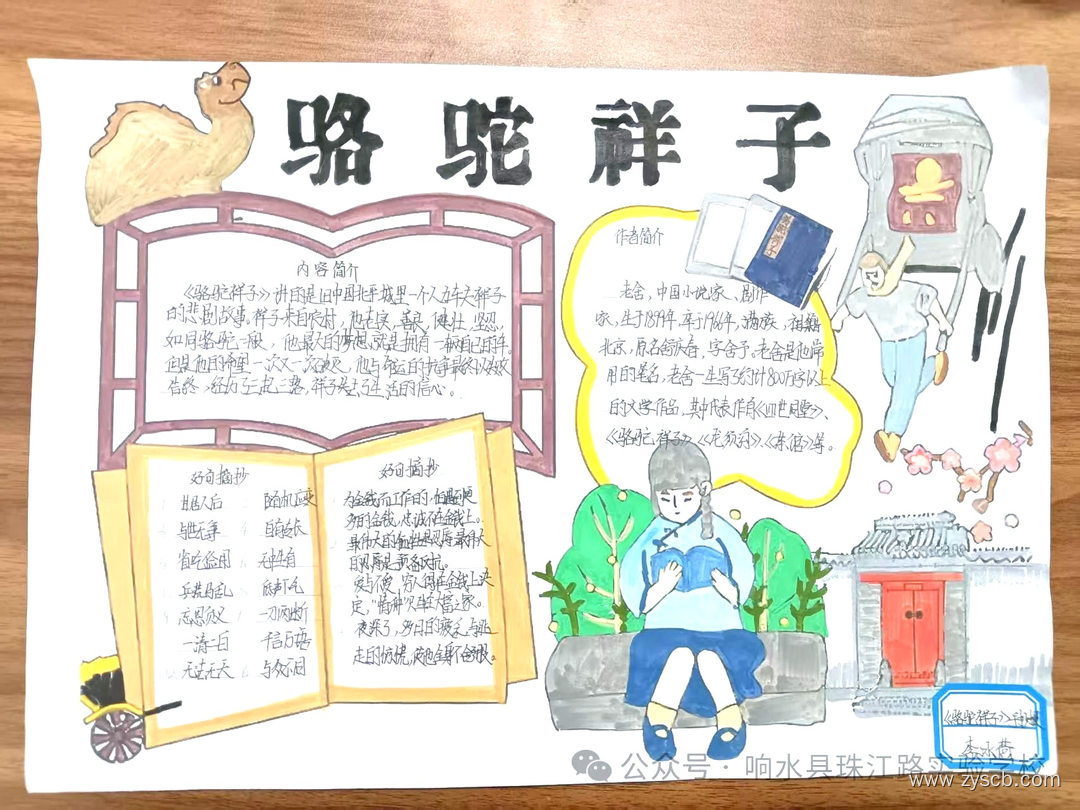 骆驼祥子
内容简介
《骆驼祥子》讲的是旧中国北平城里一个人力车夫祥子
的悲剧故事。祥子来自农村，他老实、善良、健壮、坚忍，
如同骆驼一般，他最大的梦想就是拥有一辆自己的车。
但是他的希望一次又一次破灭，他与命运的抗争最终以失败
告终，经历三起三落，祥子失去了生活的信心。
作者简介
老舍，中国小说家、剧作
家，生于1899年，卒于1966年，满族，祖籍
北京，原名舒庆春，字舍予。老舍是他常
用的笔名，老舍一生写了约计800万字以上
的文学作品，其中代表作有《四世同堂》、
《骆驼祥子》《龙须沟》《茶馆》等。
骆驼祥子
好句摘抄
随机应变
与世无争
省吃俭用
兵荒马乱
忘恩负义 一刀两断
一清二白 千言万语
无法无天 与众不同
好句摘抄
为金钱而工作的，怕遇到更
多的金钱，忠诚不立在金钱上。
爱与不爱，穷人得在金钱上决
定，“情种”只生在大富之家。
夜来了，多日的疲乏，与逃
走的惊慌，使他全身不舒服。
《骆驼祥子》
李冰燕
公众号·响水县珠江路实验学校
www.zyscb.com